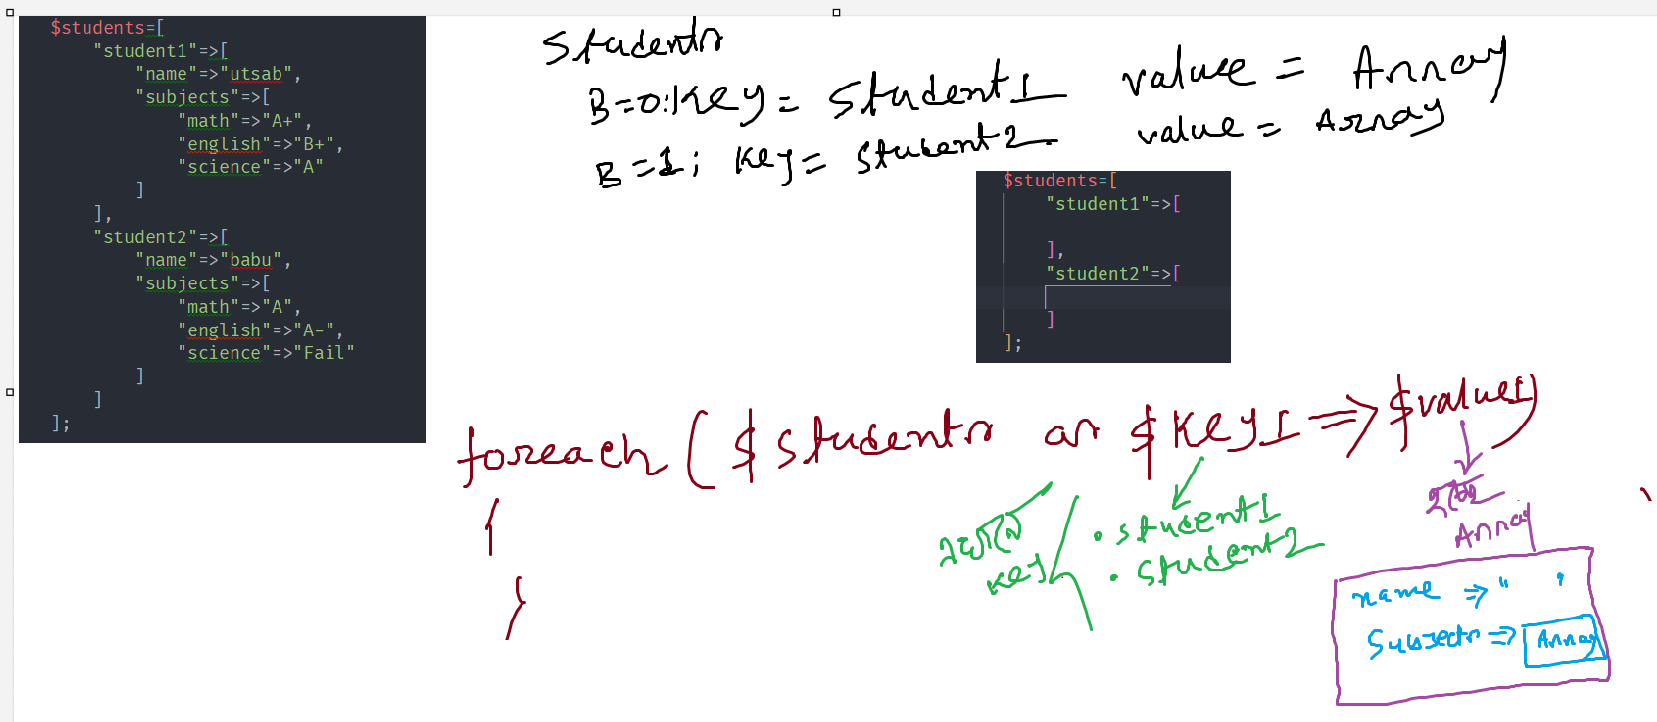 $students=[
"student1"=>[
"name"=>"utsab",
"subjects"=>[
"math"=>"A+",
"english"=>"B+",
"science"=>"A"
]
],
"student2"=>[
"name"=>"babu",
"subjects"=>[
"math"=>"A",
"english"=>"A-",
"science"=>"Fail"
]
]
];
Students
B=0: Key = Student1 value = Array
B=1; Key = Student2 value = Array
$students=[
"student1"=>[
],
"student2"=>[
]
];
foreach ($students as $key1 => $value1)
{
}
key
• student1
• student2
Array
name => " "
Subjects => Array